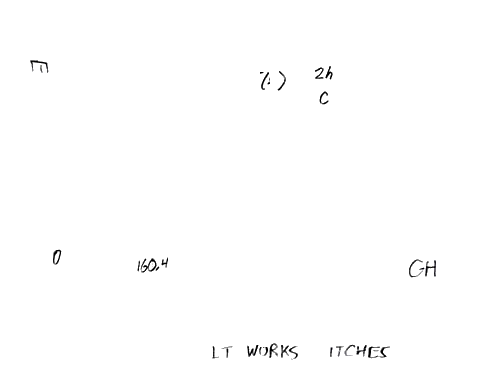 2h
C
0 160.4 GH
LT WORKS ITCHES